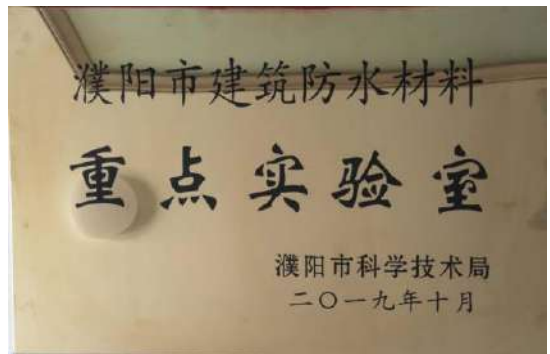 濮阳市建筑防水材料
重点实验室
濮阳市科学技术局
二〇一九年十月